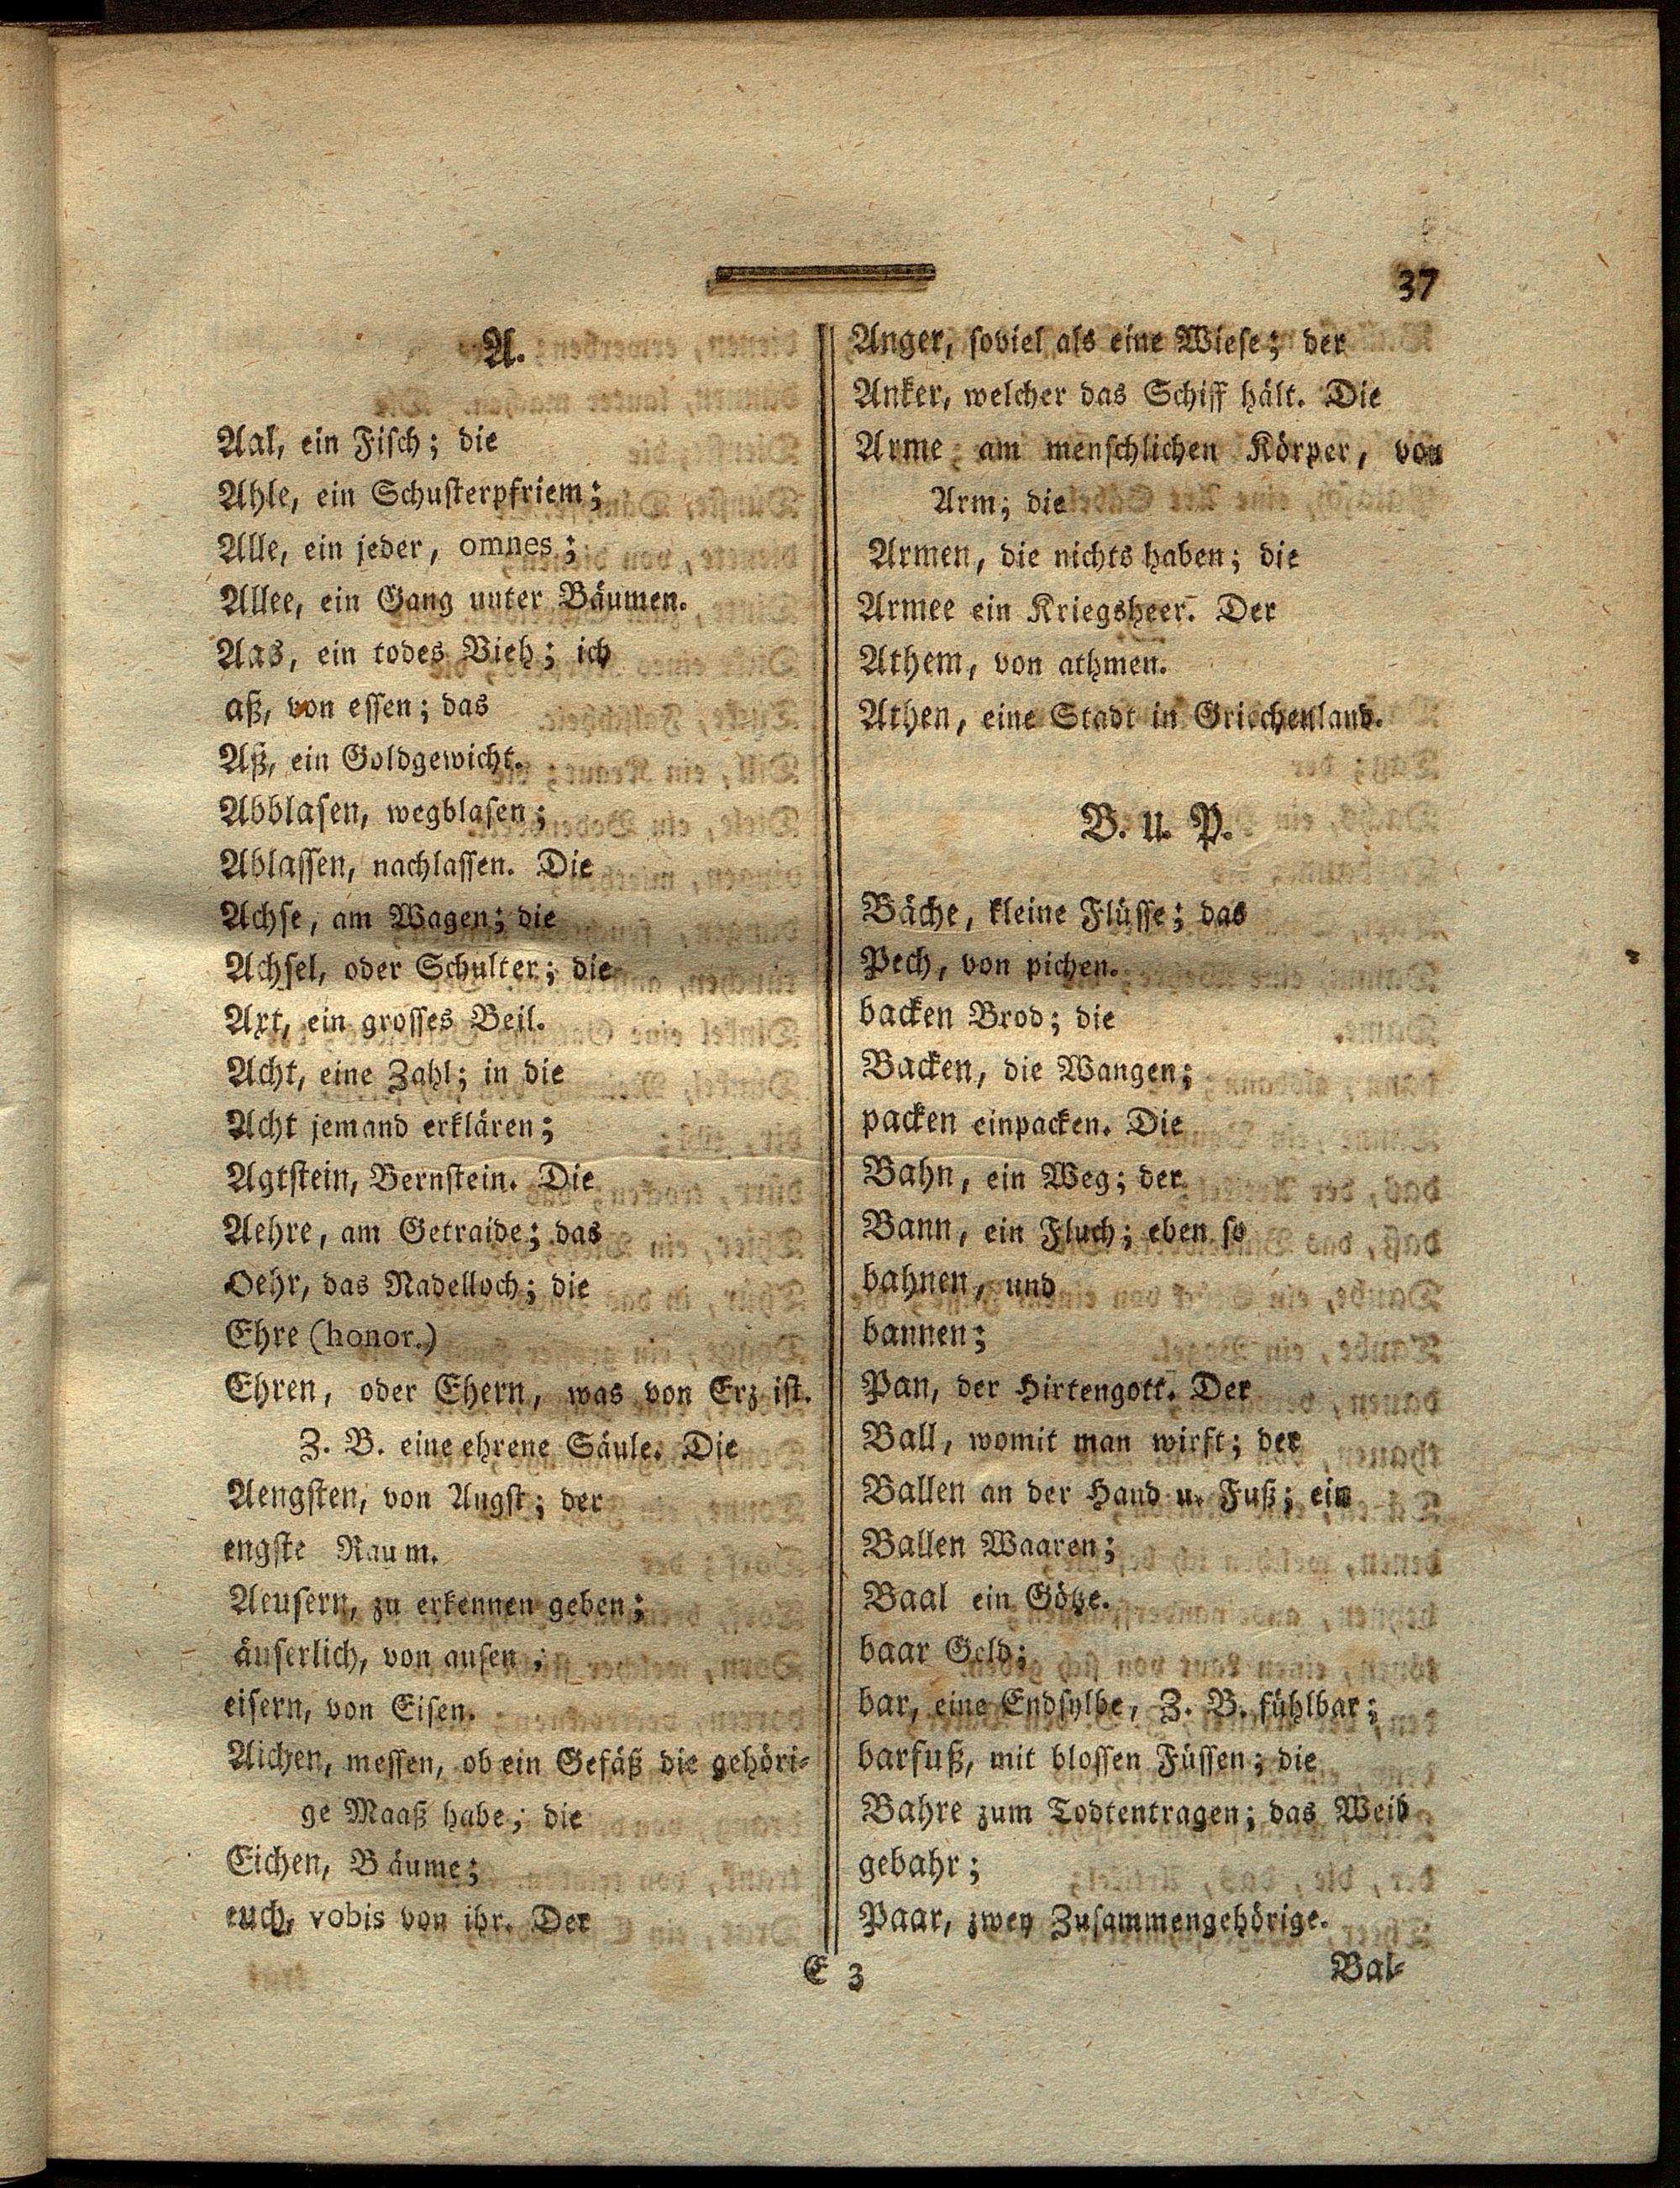 37
A.
Aal, ein Fisch; die
Ahle, ein Schusterpfriem;
Alle, ein jeder, omnes;
Allee, ein Gang unter Bäumen.
Aas, ein todes Vieh; ich
aß, von essen; das
Aß, ein Goldgewicht.
Abblasen, wegblasen;
Ablassen, nachlassen. Die
Achse, am Wagen; die
Achsel, oder Schulter; die
Axt, ein grosses Beil.
Acht, eine Zahl; in die
Acht jemand erklären;
Agtstein, Bernstein. Die
Aehre, am Getraide; das
Oehr, das Nadelloch; die
Ehre (honor.)
Ehren, oder Ehern, was von Erz ist.
Z. B. eine ehrene Säule. Die
Aengsten, von Angst; der
engste Raum.
Aeusern, zu erkennen geben;
äuserlich, von ausen;
eisern, von Eisen.
Aichen, messen, ob ein Gefäß die gehöri-
ge Maaß habe; die
Eichen, Bäume;
euch, vobis von ihr. Der
Anger, soviel als eine Wiese; der
Anker, welcher das Schiff hält. Die
Arme am menschlichen Körper, von
Arm; die
Armen, die nichts haben; die
Armee ein Kriegsheer. Der
Athem, von athmen.
Athen, eine Stadt in Griechenland.
B. u. P.
Bäche, kleine Flüsse; das
Pech, von pichen.
backen Brod; die
Backen, die Wangen;
packen einpacken. Die
Bahn, ein Weg; der
Bann, ein Fluch; eben so
bahnen, und
bannen;
Pan, der Hirtengott. Der
Ball, womit man wirft; der
Ballen an der Hand u. Fuß; ein
Ballen Waaren;
Baal ein Götze.
baar Geld;
bar, eine Endsylbe, Z. B. fühlbar;
barfuß, mit blossen Füssen; die
Bahre zum Todtentragen; das Weib
gebahr;
Paar, zwey Zusammengehörige.
E 3
Bal-